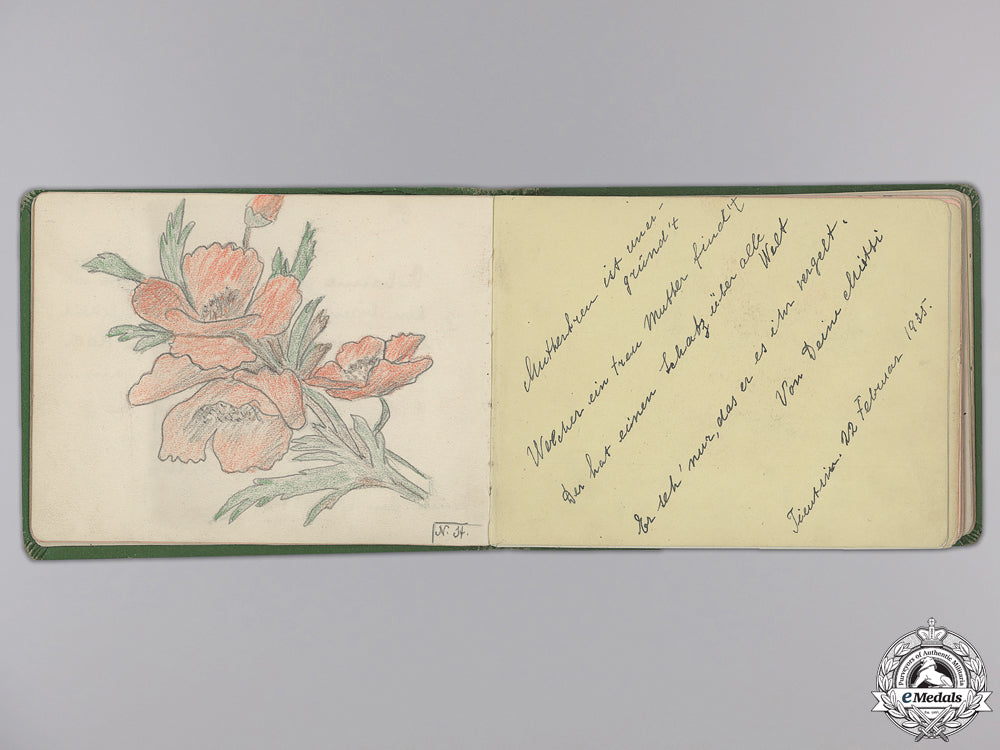 N. H.
Muttertreu ist uner-
gründ't
Welcher ein treu Mutter find't
Der hat einen Schatz über alle
Welt
Er seh' nur, das er es ihr vergelt.
Von Deine Mutti
22 Februar 1935.
Purveyors of Authentic Militaria
eMedals